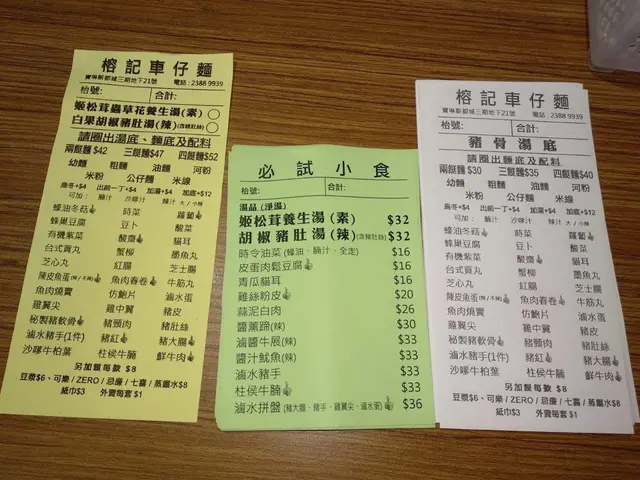 榕記車仔麵
寶琳新都城三期地下21號 電話:2388 9939
枱號: 合計:
姬松茸蟲草花養生湯(素)
白果胡椒豬肚湯(辣)(含豬肚絲)
請圈出湯底、麵底及配料
兩餸麵$42 三餸麵$47 四餸麵$52
幼麵 粗麵 油麵 河粉
米粉 公仔麵 米線
烏冬+$4 出前一丁+$4 加湯+$4 加底+$12
可加: 腩汁 沙嗲汁 辣汁 大/小辣
蠔油冬菇 時菜 蘿蔔
蜂巢豆腐 豆卜 酸菜
有機紫菜 酸齋 貓耳
台式貢丸 蟹柳 墨魚丸
芝心丸 紅腸 芝士腸
陳皮魚蛋(辣/不辣) 魚肉春卷 牛筋丸
魚肉燒賣 仿鮑片 滷水蛋
雞翼尖 雞中翼 豬皮
秘製豬軟骨 豬頸肉 豬肚絲
滷水豬手(1件) 豬紅 豬大腸
沙嗲牛柏葉 柱侯牛腩 鮮牛肉
另加餸每款$8
豆漿$6、可樂/ZERO/忌廉/七喜/蒸餾水$8
紙巾$3 外賣每套$1
必試小食
枱號: 合計:
湯品 (淨湯)
姬松茸養生湯(素) $32
胡椒豬肚湯(辣)(含豬肚絲) $32
時令油菜(蠔油、腩汁、全走) $16
皮蛋肉鬆豆腐 $16
青瓜貓耳 $16
雞絲粉皮 $20
蒜泥白肉 $26
醬薰蹄(辣) $30
滷醬牛展(辣) $33
醬汁魷魚(辣) $33
滷水豬手 $33
柱侯牛腩 $33
滷水拼盤(豬大腸、豬手、雞翼尖、滷水蛋) $36
榕記車仔麵
寶琳新都城三期地下21號 電話:2388 9939
枱號: 合計:
豬骨湯底
請圈出麵底及配料
兩餸麵$30 三餸麵$35 四餸麵$40
幼麵 粗麵 油麵 河粉
米粉 公仔麵 米線
烏冬+$4 出前一丁+$4 加湯+$4 加底+$12
可加: 腩汁 沙嗲汁 辣汁 大/小辣
蠔油冬菇 時菜 蘿蔔
蜂巢豆腐 豆卜 酸菜
有機紫菜 酸齋 貓耳
台式貢丸 蟹柳 墨魚丸
芝心丸 紅腸 芝士腸
陳皮魚蛋(辣/不辣) 魚肉春卷 牛筋丸
魚肉燒賣 仿鮑片 滷水蛋
雞翼尖 雞中翼 豬皮
秘製豬軟骨 豬頸肉 豬肚絲
滷水豬手(1件) 豬紅 豬大腸
沙嗲牛柏葉 柱侯牛腩 鮮牛肉
另加餸每款$8
豆漿$6、可樂/ZERO/忌廉/七喜/蒸餾水$8
紙巾$3 外賣每套$1